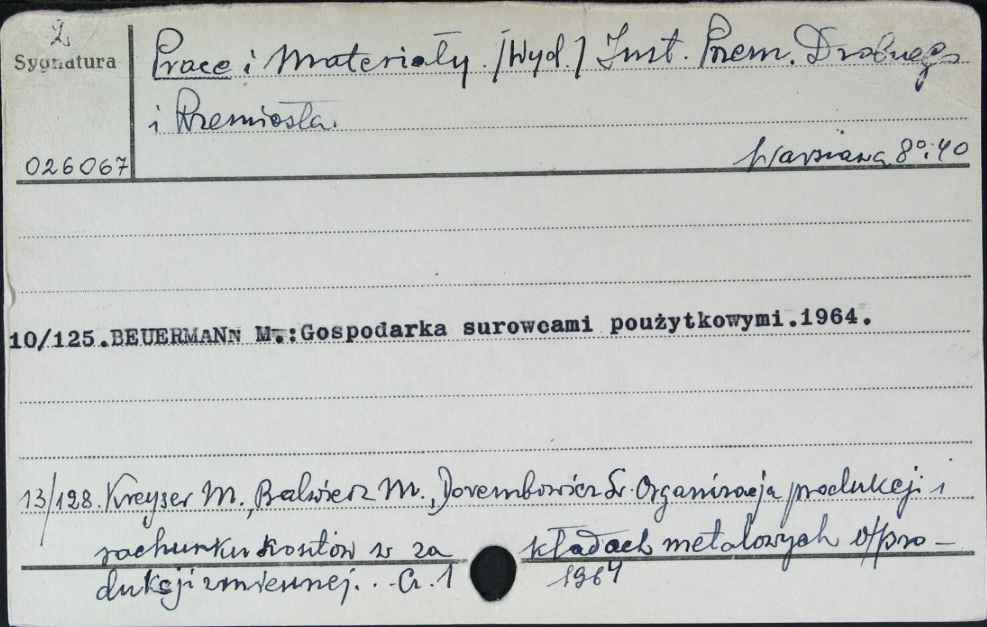 2
Sygnatura
Prace i Materiały. [Wyd.] Inst. Przem. Drobnego
i Rzemiosła.
026067
Warszawa 8°: 40
10/125.BEUERMANN M.:Gospodarka surowcami poużytkowymi.1964.
13/128. Kreyser M., Balwierz M., Organizacja produkcji i
rachunku kosztów w za kładach metalowych o/pro-
dukcji zmiennej. . Cz. 1 1964